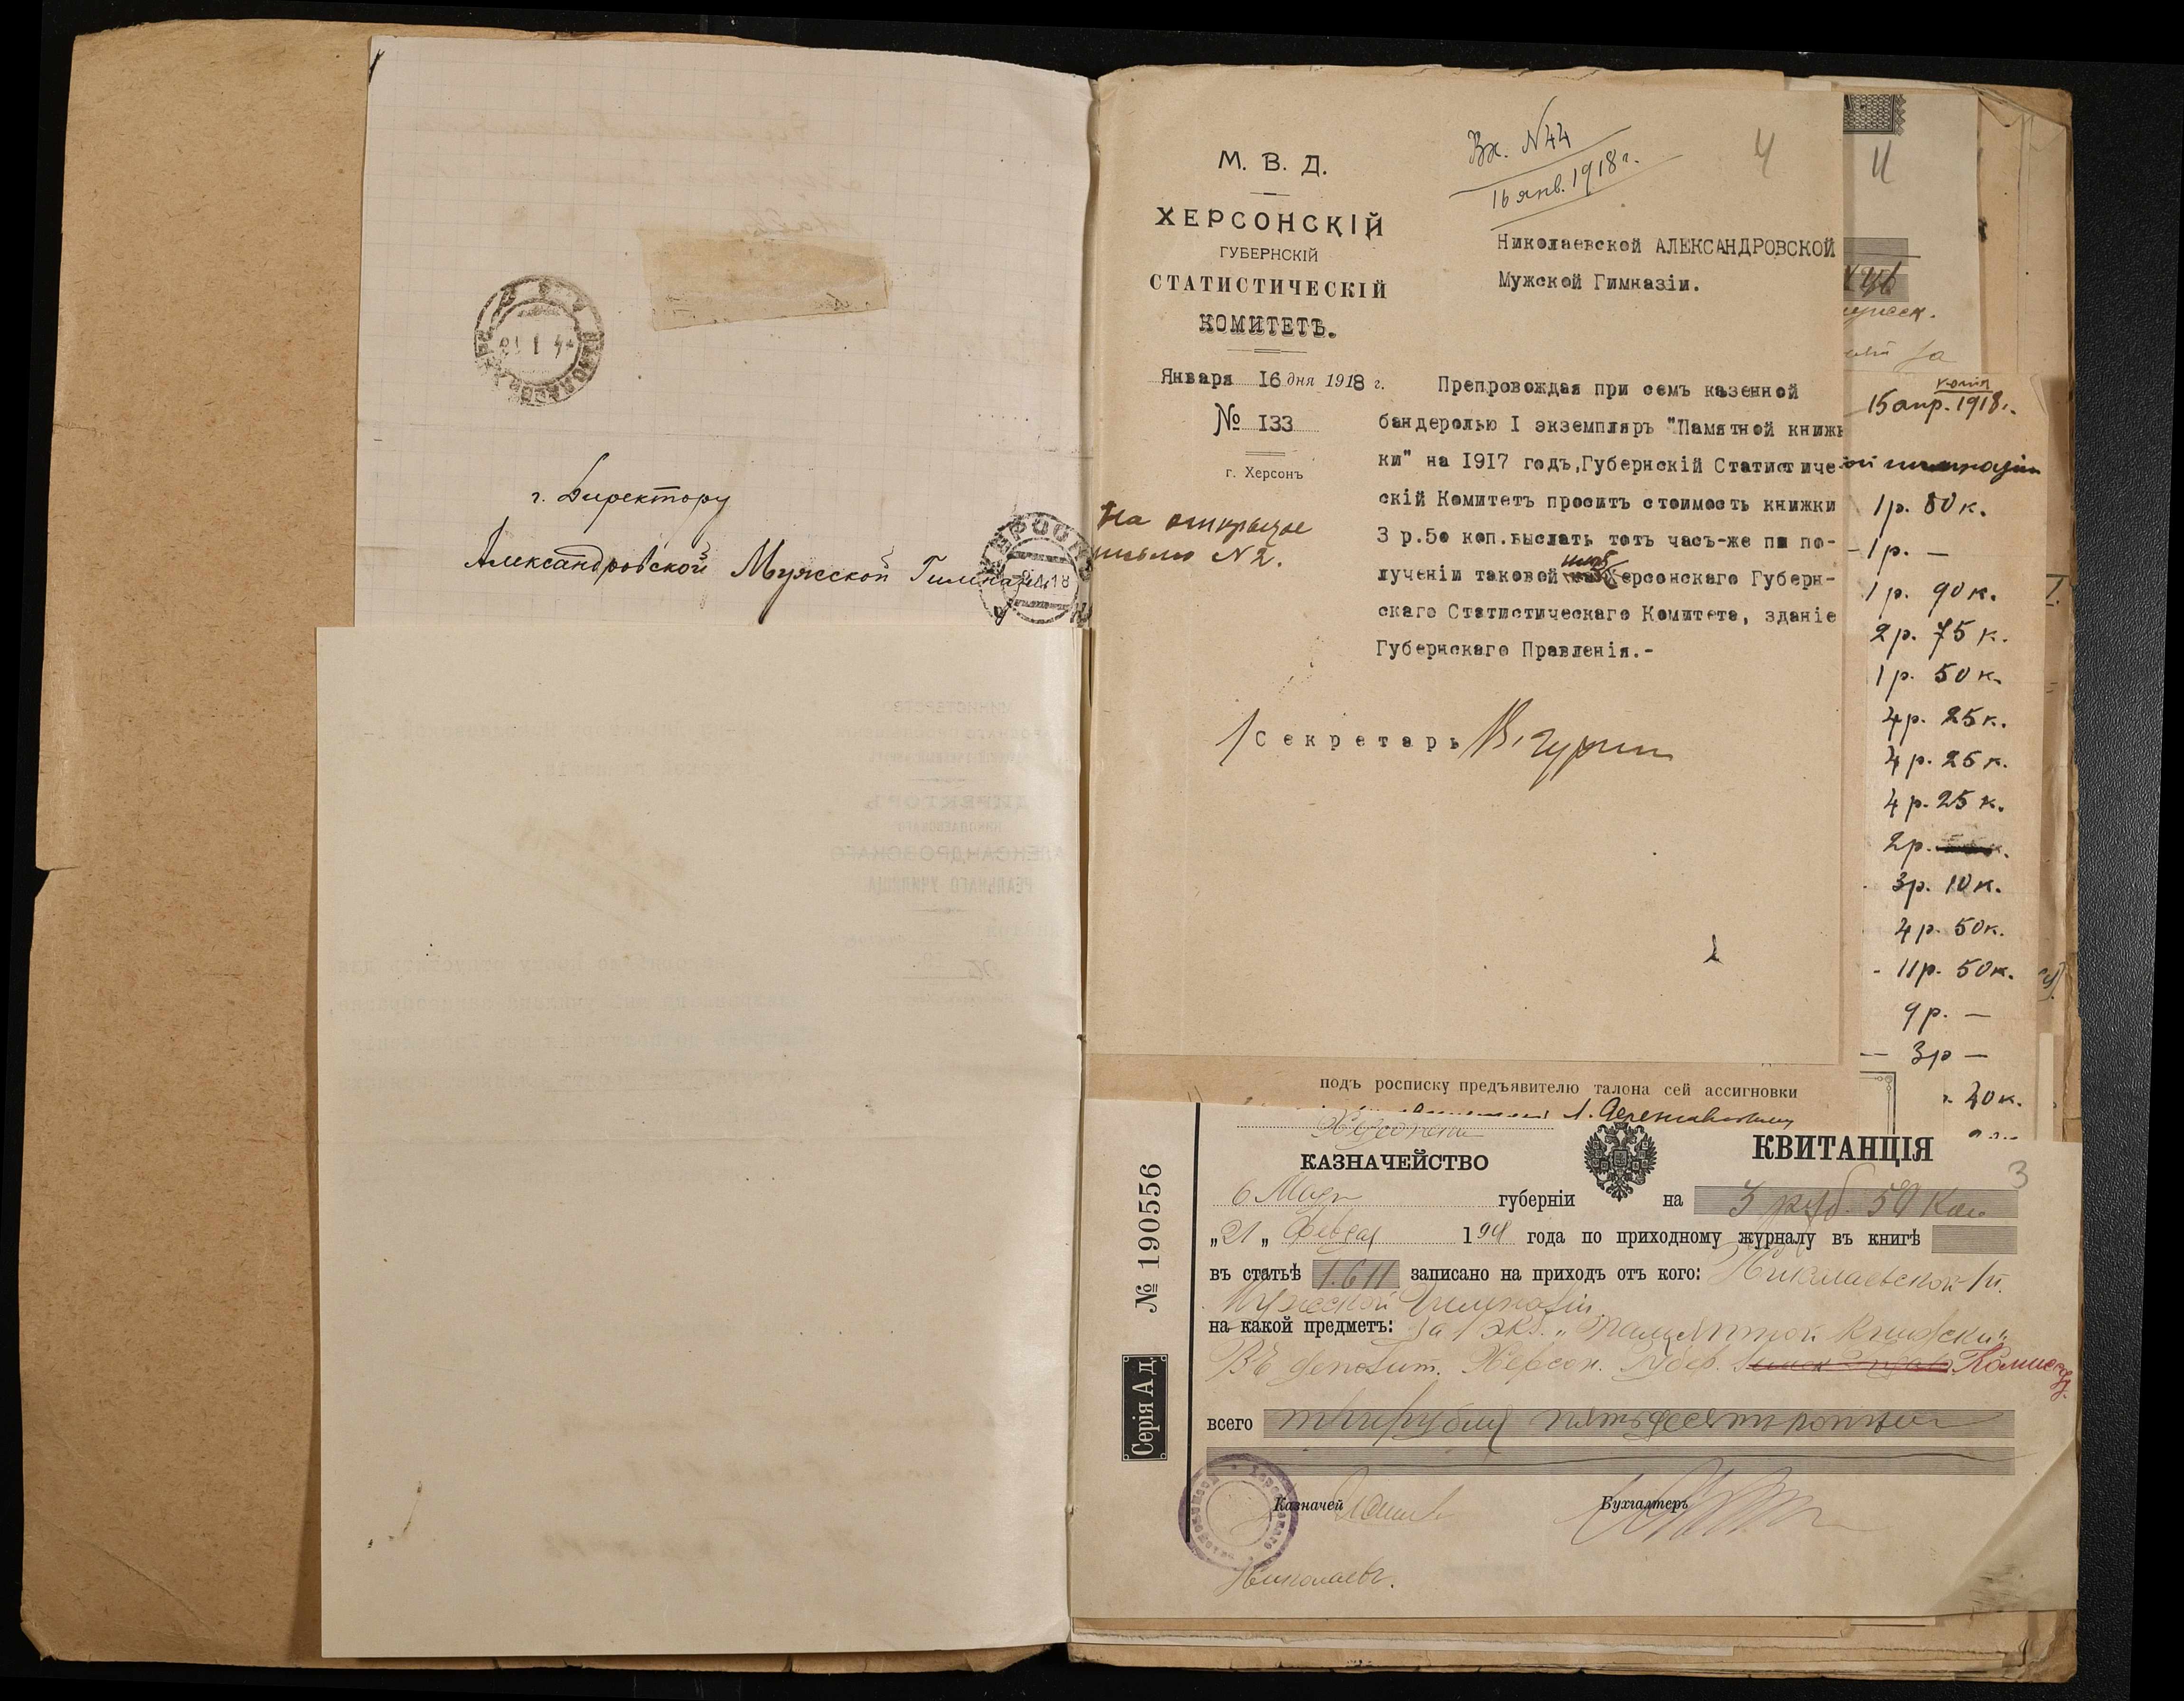 г. Директору
Александровской Мужской Гимназіи
М. В. Д.
ХЕРСОНСКІЙ
ГУБЕРНСКІЙ
СТАТИСТИЧЕСКІЙ
КОМИТЕТЪ.
Января 16 дня 1918 г.
№ 133
г. Херсонъ
На открытое
письмо N 2.
Вх. N 44
16 янв. 1918 г.
4
Николаевской АЛЕКСАНДРОВСКОЙ
Мужской Гимназіи.
Препровождая при семъ казенной
бандеролью I экземпляръ "Памятной книж
ки" на 1917 годъ, Губернскій Статистиче
скій Комитетъ проситъ стоимость книжки
3 р.50 коп.выслать тотъ часъ-же по по-
лученіи таковой Херсонскаго Губерн-
скаго Статистическаго Комитета, зданіе
Губернскаго Правленія.-
Секретарь
копія
15 апр. 1918 г.
1 р. 80 к.
1 р. —
1 р. 90 к.
2 р. 75 к.
1 р. 50 к.
4 р. 25 к.
4 р. 25 к.
4 р. 25 к.
2 р.
3 р. 10 к.
4 р. 50 к.
- 11 р. 50 к.
9 р. —
— 3 р —
40 к.
подъ росписку предъявителю талона сей ассигновки
№ 190556
Серія А д.
КАЗНАЧЕЙСТВО
КВИТАНЦІЯ
3
губерніи на 3 руб. 50 Коп
„21„ Феврал 1918 года по приходному журналу въ книгѣ
въ статьѣ 1.611 записано на приходъ отъ кого: Николаевской 1й
Мужской Гимназіи
на какой предметъ: За 1 экз. „Памятной Книжки"
Въ депозит. Херсон. Губер. Комиссар.
всего три рубля пятьдесят копѣек
Казначей
Бухгалтеръ
Николаевъ.